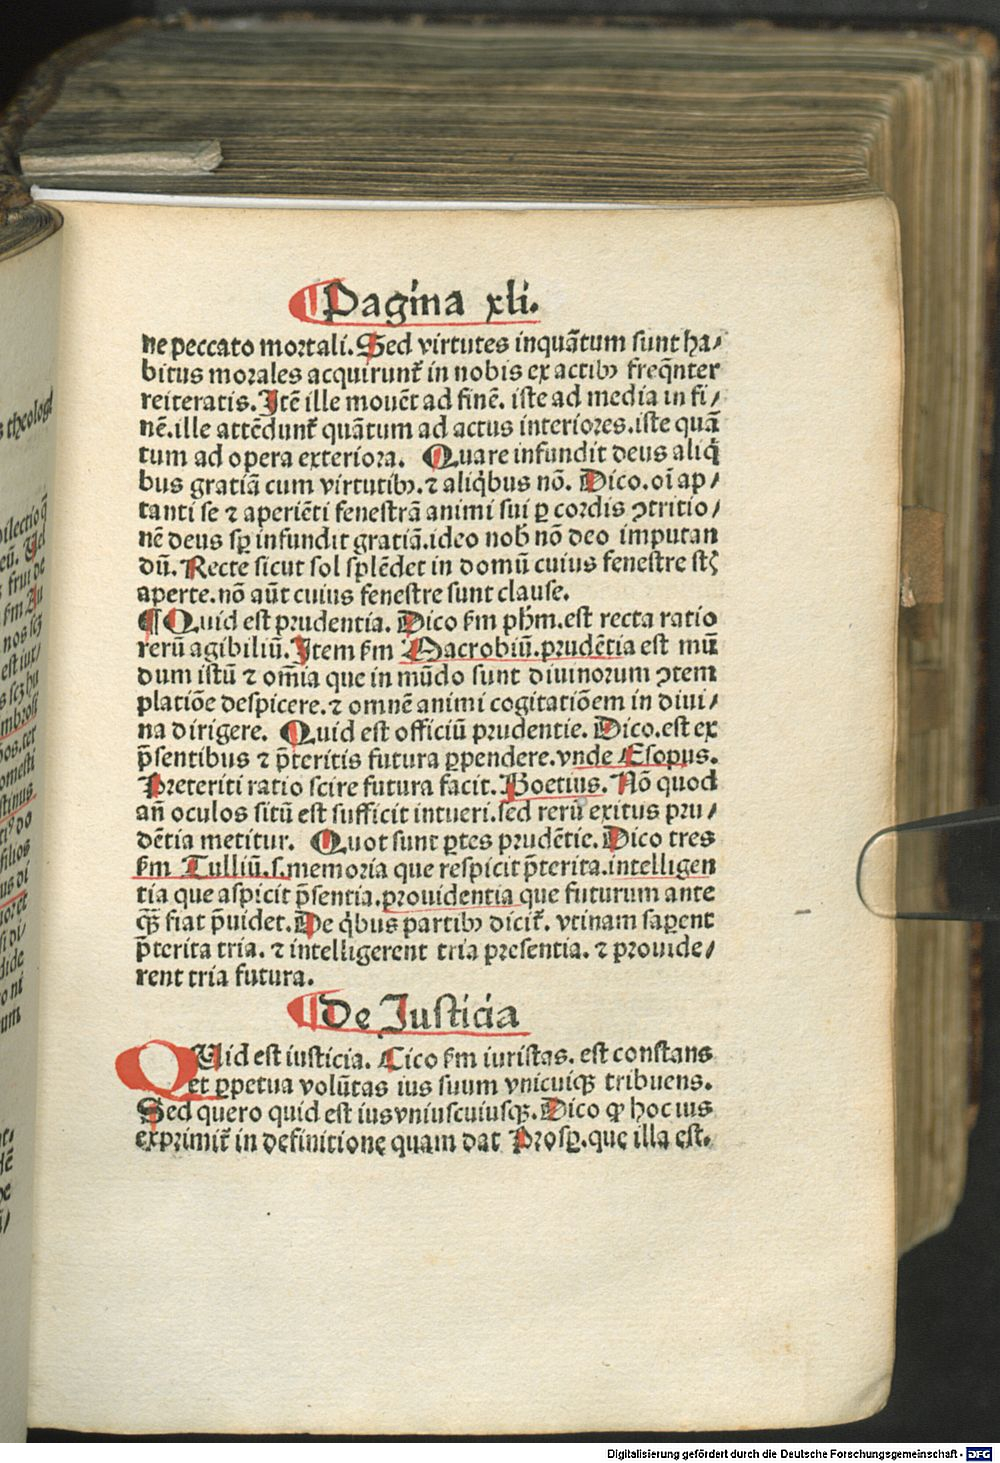 ¶Pagina xli.
ne peccato mortali. Sed virtutes inquãtum sunt ha/
bitus morales acquirunt᷑ in nobis ex actibꝫ freq̃nter
reiteratis. Itẽ ille mouẽt ad finẽ. iste ad media in fi/
nẽ. ille attẽdunt᷑ quãtum ad actus interiores. iste quã
tum ad opera exteriora. Quare infundit deus aliq̇
bus gratiã cum virtutibꝫ. ⁊ aliq̇bus nõ. Dico. oĩ ap/
tanti se ⁊ aperiẽti fenestrã animi sui ꝑ cordis ↄtritio/
nẽ deus sꝑ infundit gratiã. ideo nob̃ nõ deo imputan
dũ. Recte sicut sol splẽdet in domũ cuius fenestre stꝫ
aperte. nõ aũt cuius fenestre sunt clause.
¶ Quid est prudentia. Dico ẜm pħm. est recta ratio
rerũ agibiliũ. Item ẜm Macrobiũ. prudẽtia est mũ
dum istũ ⁊ om̃ia que in mũdo sunt diuinorum ↄtem
platiõe despicere. ⁊ omnẽ animi cogitatiõem in diui/
na dirigere. Quid est officiũ prudentie. Dico. est ex
p̃sentibus ⁊ p̃teritis futura ꝑpendere. vnde Esopus.
Preteriti ratio scire futura facit. Boetius. Nõ quod
añ oculos sitũ est sufficit intueri. sed rerũ exitus pru/
dẽtia metitur. Quot sunt ꝑtes prudẽtie. Dico tres
ẜm Tulliũ. s. memoria que respicit p̃terita. intelligen
tia que aspicit p̃sentia. prouidentia que futurum ante
qꝫ̃ fiat p̃uidet. De q̇bus partibꝫ dicit᷑. vtinam saꝑent
p̃terita tria. ⁊ intelligerent tria presentia. ⁊ prouide/
rent tria futura.
¶De Iusticia
QUid est iusticia. Dico ẜm iuristas. est constans
et ꝑpetua volũtas ius suum vnicuiqꝫ tribuens.
Sed quero quid est ius vniuscuiusqꝫ. Dico ꝙ hoc ius
exprimit᷑ in definitione quam dat Prosꝑ. que illa est.
Digitalisierung gefördert durch die Deutsche Forschungsgemeinschaft - DFG